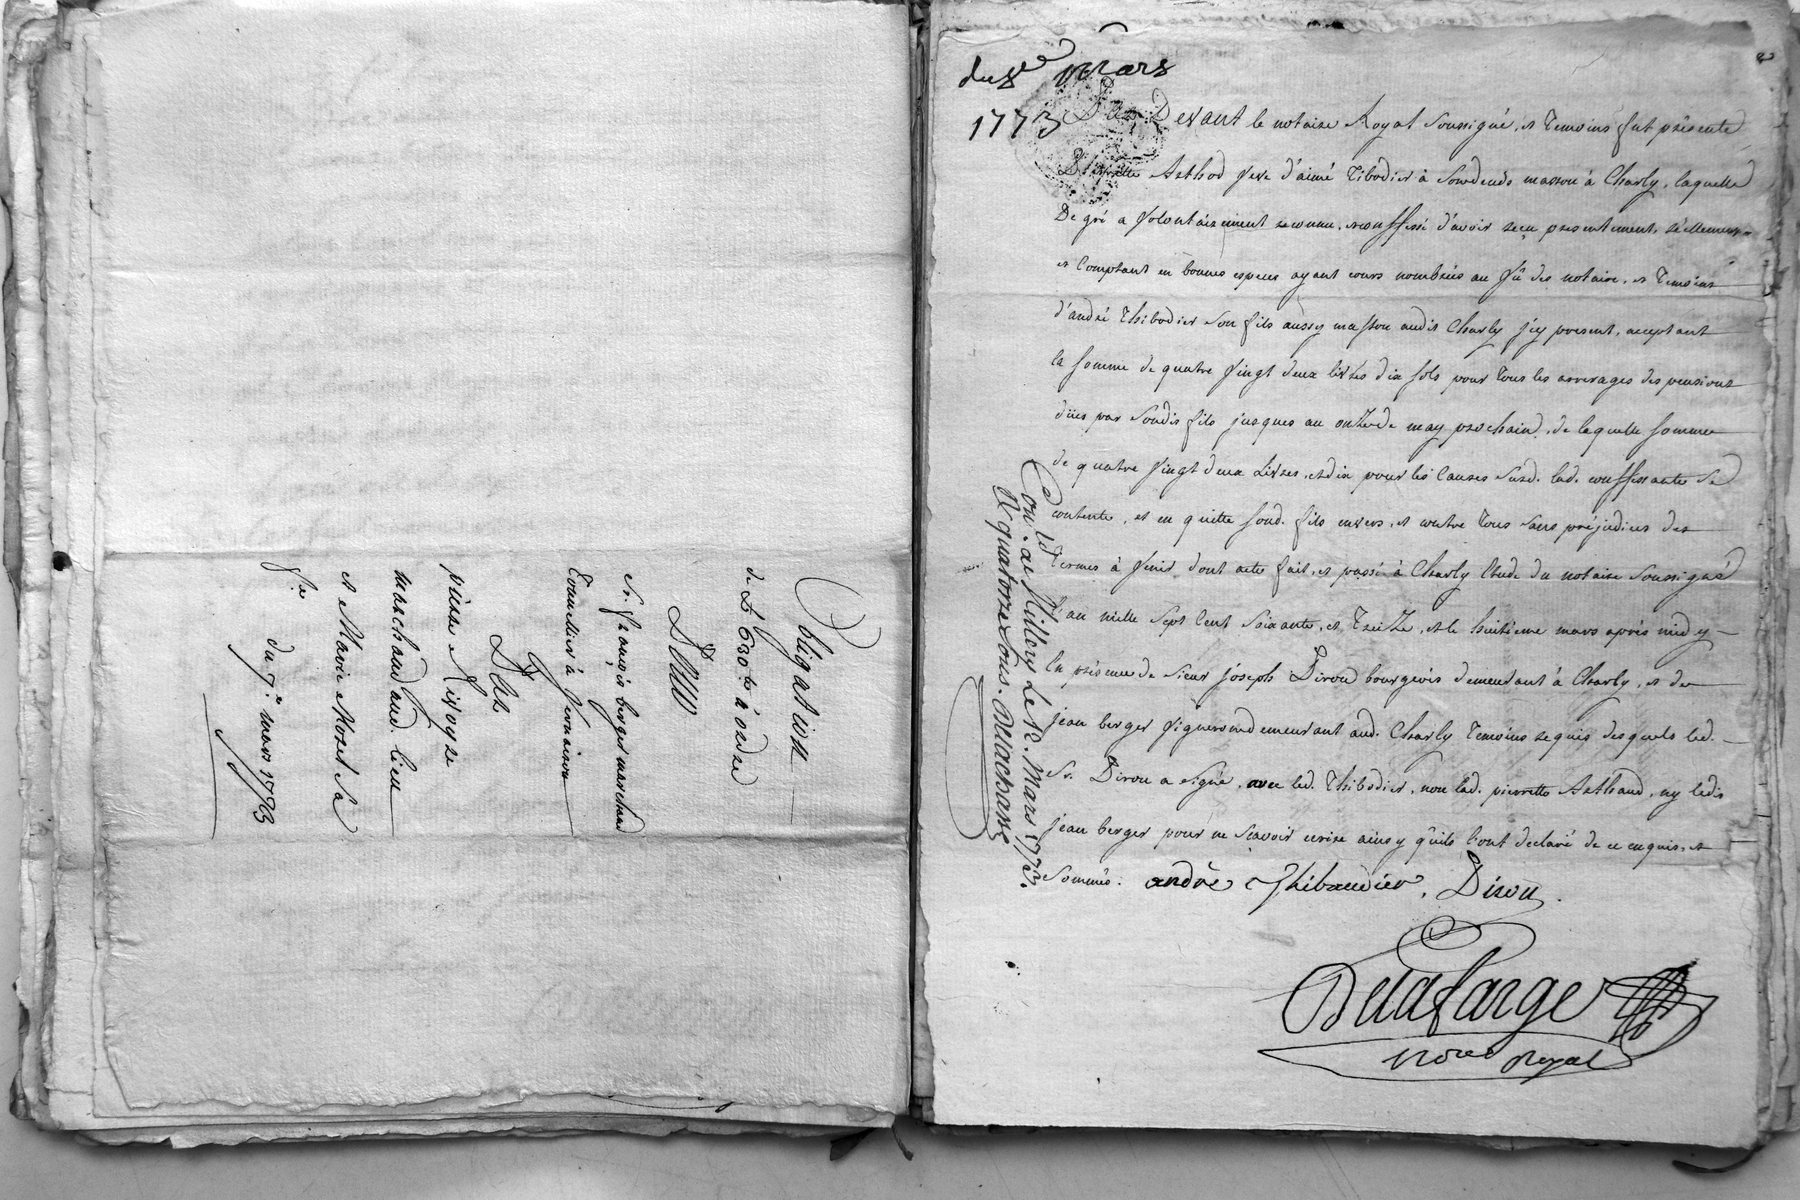 Obligation
de L 630 ₶ à ordre
Pour
Sr. françois berger marchand
Tonnelier à Vernaison
Des
pierre Rivoyre
marchand aud. lieu
et Marie Morel sa
fe.
du 7e. mars 1773
du 8e Mars
1773
Par Devant le notaire Royal soussigné, et temoins fut présente
Pierrette Arthod veve d'aimé Tibodier à masson à Charly, laquelle
De gré a volontairement reconnu, et conffessé d'avoir reçu presentement, réellement
et Comptant en bonnes especes ayant cours nombrées au vû des notaire, et Temoins
d'andré Thibodier son fils aussy masson audit Charly icy present, acceptant
la somme de quatre vingt deux livres dix sols pour tous les arrerages des pensions
dües par sondit fils jusques au onze de may prochain, de laquelle somme
de quatre vingt deux Livres, et dix pour les Causes susd. lad. conffessante se
contente, et en quitte sond. fils envers, et contre tous sans prejudices des
Termes à venir dont acte fait, et passé à Charly Etude du notaire soussigné
l'an mille sept Cent soixante, et treize, et le huitieme mars après midy
En présence de sieur joseph Dirou bourgeois demeurant à Charly, et de
jean berger vigneron demeurant aud. Charly Temoins requis desquels led.
Sr. Dirou a signé, avec led. Thibodier, non lad. pierrette Arthaud, ny ledit
jean berger pour ne scavoir ecrire ainsy qu'ils l'ont declaré de ce enquis, et
Sommés. andré Thibaudier, Dirou.
Delafarge
Nore Royal
Con.lé. au Millery Le 12. Mars 1773.
R. quatorze sous.